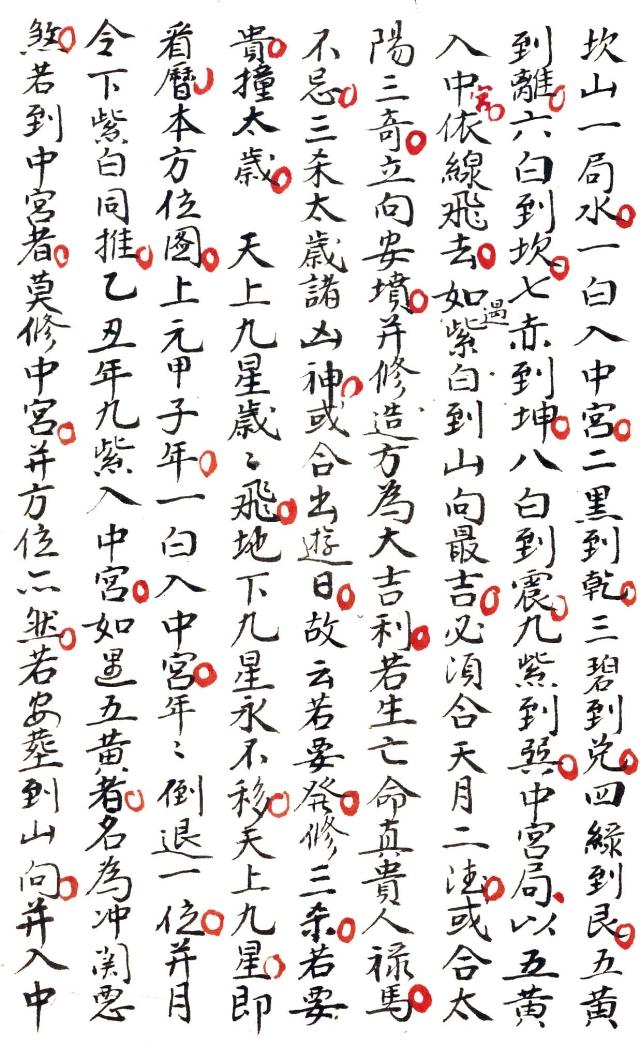 坎山一局水一白入中宮二黑到乾三碧到兌四綠到艮五黃
到離六白到坎七赤到坤八白到震九紫到巽中宮局以五黃
入中宮依線飛去如遇紫白到山向最吉必須合天月二德或合太
陽三奇立向安墳并修造方為大吉利若生亡命真貴人祿馬
不忌三杀太歲諸凶神或合出遊日故云若要發修三杀若要
貴撞太歲 天上九星歲〻飛地下九星永不移天上九星即
看曆本方位图上元甲子年一白入中宮年〻倒退一位并月
令下紫白同推乙丑年九紫入中宮如遇五黃者名為冲関惡
煞若到中宮者莫修中宮并方位亦然若安塟到山向并入中